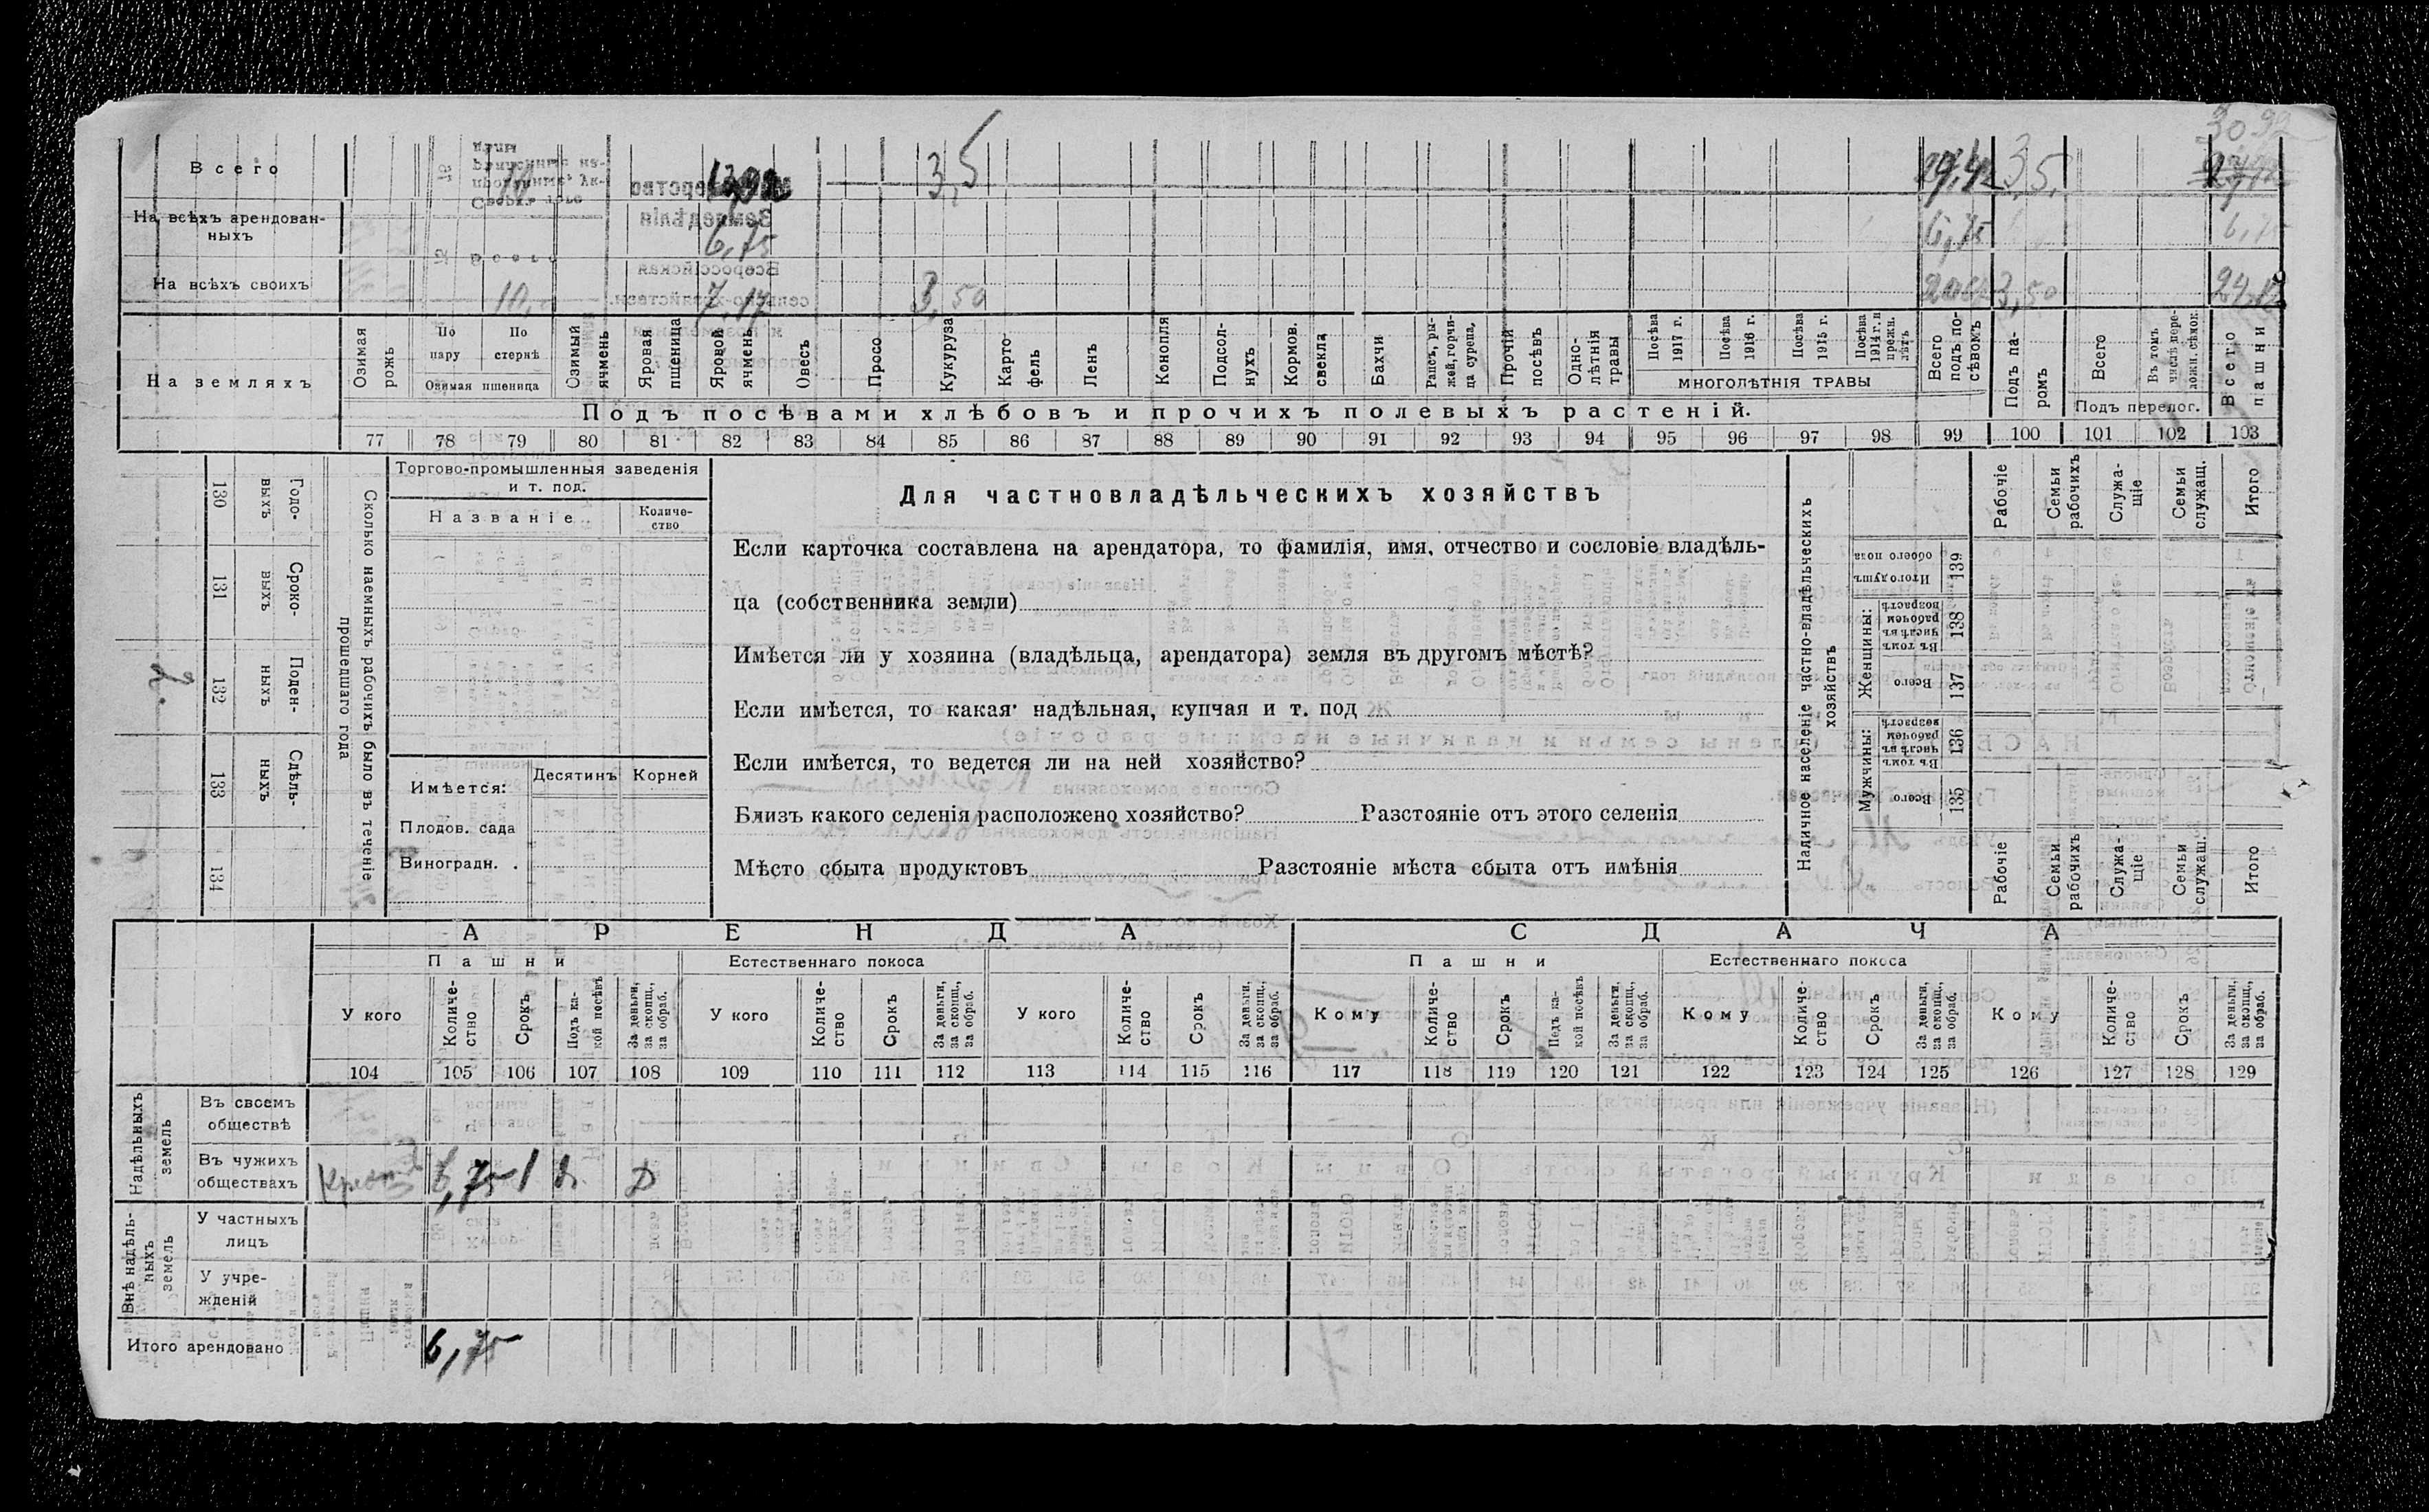 Всего
На всѣхъ арендован-
ныхъ
6,75 6,75 6,75
На всѣхъ своихъ
3,50 3,50
3,5 3,5
На земляхъ
Озимая рожь
По пару
По стернѣ
Озимая пшеница
Озимый ячмень
Яровая пшеница
Яровой ячмень
Овесъ
Просо
Кукуруза
Карто-
фель
Ленъ
Конопля
Подсол-
нухъ
Кормов. свекла
Бахчи
Рапсъ, ры-
жей, горчи-
ца сурепа,
Прочій посѣвъ
Одно-
лѣтнія травы
Посѣва 1917 г.
Посѣва 1916 г.
Посѣва 1915 г.
Посѣва 1914 г. и прежн. лѣтъ
МНОГОЛѢТНІЯ ТРАВЫ
Всего подъ по-
сѣвомъ
Подъ па-
ромъ
Всего
Въ томъ числѣ пере-
ложн. сѣнок.
Подъ перелог.
Всего пашни
Подъ посѣвами хлѣбовъ и прочихъ полевыхъ растеній.
77 78 79 80 81 82 83 84 85 86 87 88 89 90 91 92 93 94 95 96 97 98 99 100 101 102 103
Сколько наемныхъ рабочихъ было въ теченіе
прошедшаго года
Годо-
выхъ
130
Сроко-
выхъ
131
Поден-
ныхъ
132
Сдѣль-
ныхъ
133
134
Торгово-промышленныя заведенія
и т. под.
Названіе
Количе-
ство
Имѣется:
Десятинъ Корней
Плодов. сада
Виноградн.
Для частновладѣльческихъ хозяйствъ
Если карточка составлена на арендатора, то фамилія, имя, отчество и сословіе владѣль-
ца (собственника земли)
Имѣется ли у хозяина (владѣльца, арендатора) земля въ другомъ мѣстѣ?
Если имѣется, то какая: надѣльная, купчая и т. под
Если имѣется, то ведется ли на ней хозяйство?
Близъ какого селенія расположено хозяйство? Разстояніе отъ этого селенія
Мѣсто сбыта продуктовъ Разстояніе мѣста сбыта отъ имѣнія
Наличное населеніе частно-владѣльческихъ
хозяйствъ
Мужчины:
Всего
135
Въ томъ числѣ въ рабочемъ возрастѣ
136
Женщины:
Всего
137
Въ томъ числѣ въ рабочемъ возрастѣ
138
Итого душъ обоего пола
139
Рабочіе
Семьи рабочихъ
Служа-
щіе
Семьи служащ.
Итого
Рабочіе
Семьи рабочихъ
Служа-
щіе
Семьи служащ.
Итого
АРЕНДА СДАЧА
Пашни Естественнаго покоса Пашни Естественнаго покоса
У кого
Количе-
ство
Срокъ
Подъ ка-
кой посѣвъ
За деньги, за скопщ., за обраб.
У кого
Количе-
ство
Срокъ
За деньги, за скопщ., за обраб.
У кого
Количе-
ство
Срокъ
За деньги, за скопщ., за обраб.
Кому
Количе-
ство
Срокъ
Подъ ка-
кой посѣвъ
За деньги, за скопщ., за обраб.
Кому
Количе-
ство
Срокъ
За деньги, за скопщ., за обраб.
Кому
Количе-
ство
Срокъ
За деньги, за скопщ., за обраб.
104 105 106 107 108 109 110 111 112 113 114 115 116 117 118 119 120 121 122 123 124 125 126 127 128 129
Надѣльныхъ
земель
Въ своемъ
обществѣ
Въ чужихъ
обществахъ
6,75 1
Внѣ надѣль-
ныхъ
земель
У частныхъ
лицъ
У учре-
жденій
Итого арендовано
6,75